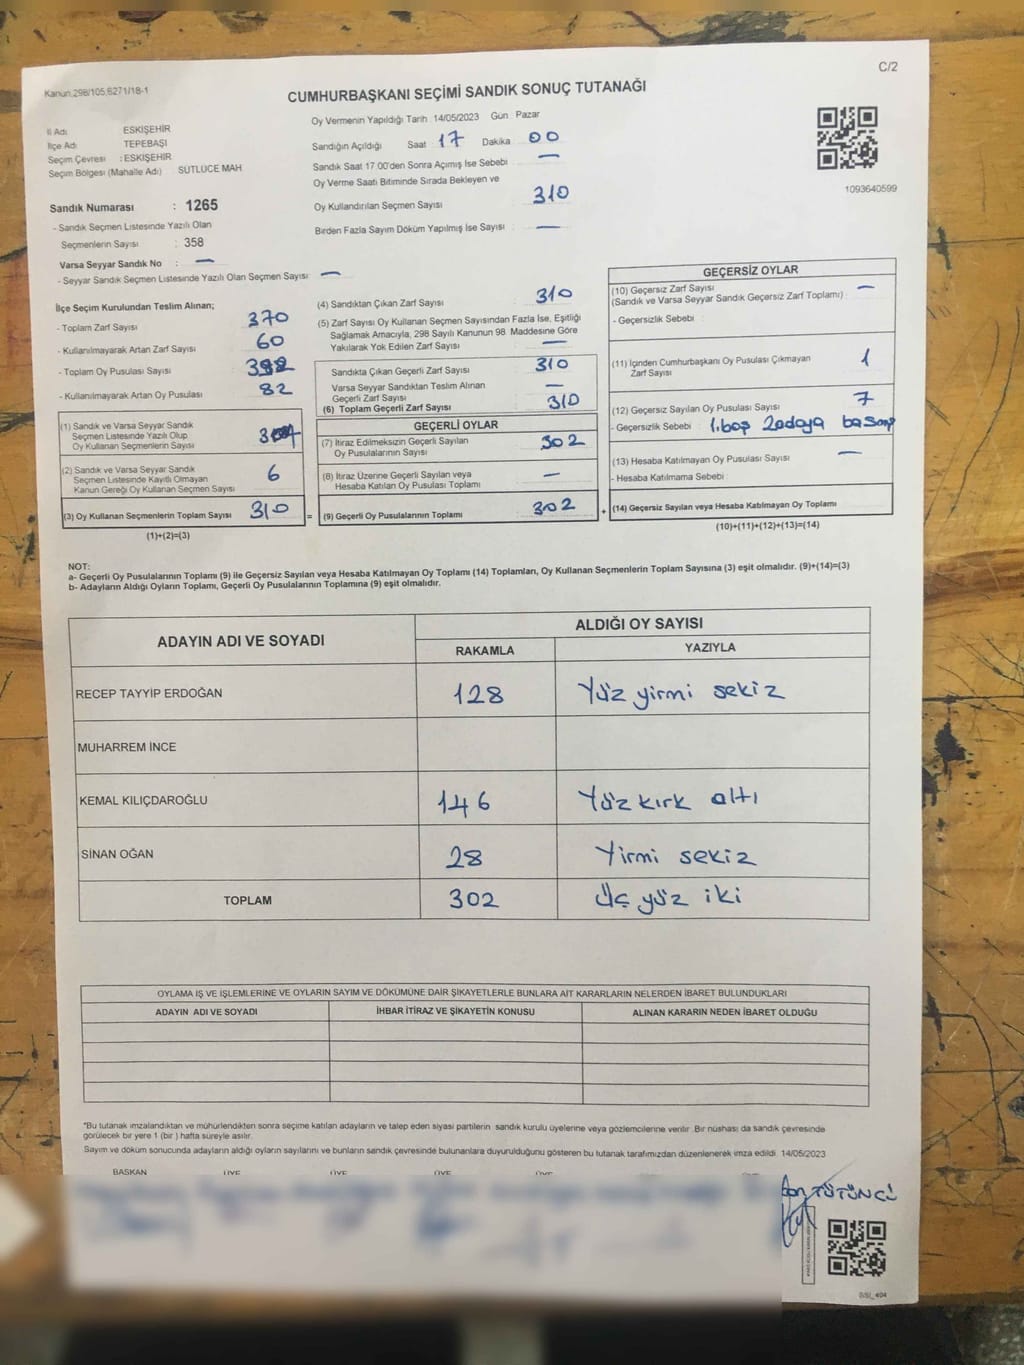 C/2
Kanun,298/105,6271/18-1
CUMHURBAŞKANI SEÇİMİ SANDIK SONUÇ TUTANAĞI
İl Adı ESKİŞEHİR
İlçe Adı TEPEBAŞI
Seçim Çevresi : ESKİŞEHİR
Seçim Bölgesi (Mahalle Adı) SÜTLÜCE MAH
Sandık Numarası : 1265
- Sandık Seçmen Listesinde Yazılı Olan
Seçmenlerin Sayısı : 358
Varsa Seyyar Sandık No : —
- Seyyar Sandık Seçmen Listesinde Yazılı Olan Seçmen Sayısı : —
Oy Vermenin Yapıldığı Tarih 14/05/2023 Gün Pazar
Sandığın Açıldığı Saat 17 Dakika 00
Sandık Saat 17 00'den Sonra Açılmış İse Sebebi : —
Oy Verme Saati Bitiminde Sırada Bekleyen ve
Oy Kullandırılan Seçmen Sayısı : 310
Birden Fazla Sayım Döküm Yapılmış İse Sayısı : —
1093640599
İlçe Seçim Kurulundan Teslim Alınan;
- Toplam Zarf Sayısı 370
- Kullanılmayarak Artan Zarf Sayısı 60
- Toplam Oy Pusulası Sayısı
- Kullanılmayarak Artan Oy Pusulası 82
(1) Sandık ve Varsa Seyyar Sandık
Seçmen Listesinde Yazılı Olup
Oy Kullanan Seçmenlerin Sayısı
(2) Sandık ve Varsa Seyyar Sandık
Seçmen Listesinde Kayıtlı Olmayan
Kanun Gereği Oy Kullanan Seçmen Sayısı 6
(3) Oy Kullanan Seçmenlerin Toplam Sayısı 310
(1)+(2)=(3)
(4) Sandıktan Çıkan Zarf Sayısı 310
(5) Zarf Sayısı Oy Kullanan Seçmen Sayısından Fazla İse, Eşitliği
Sağlamak Amacıyla, 298 Sayılı Kanunun 98. Maddesine Göre
Yakılarak Yok Edilen Zarf Sayısı —
Sandıkta Çıkan Geçerli Zarf Sayısı 310
Varsa Seyyar Sandıktan Teslim Alınan
Geçerli Zarf Sayısı —
(6) Toplam Geçerli Zarf Sayısı 310
GEÇERLİ OYLAR
(7) İtiraz Edilmeksizin Geçerli Sayılan
Oy Pusulalarının Sayısı 302
(8) İtiraz Üzerine Geçerli Sayılan veya
Hesaba Katılan Oy Pusulası Toplamı —
= (9) Geçerli Oy Pusulalarının Toplamı 302
GEÇERSİZ OYLAR
(10) Geçersiz Zarf Sayısı —
(Sandık ve Varsa Seyyar Sandık Geçersiz Zarf Toplamı)
- Geçersizlik Sebebi :
(11) İçinden Cumhurbaşkanı Oy Pusulası Çıkmayan
Zarf Sayısı 1
(12) Geçersiz Sayılan Oy Pusulası Sayısı 7
- Geçersizlik Sebebi : 1.boş 2adaya
(13) Hesaba Katılmayan Oy Pusulası Sayısı —
- Hesaba Katılmama Sebebi :
+ (14) Geçersiz Sayılan veya Hesaba Katılmayan Oy Toplamı
(10)+(11)+(12)+(13)=(14)
NOT:
a- Geçerli Oy Pusulalarının Toplamı (9) ile Geçersiz Sayılan veya Hesaba Katılmayan Oy Toplamı (14) Toplamları, Oy Kullanan Seçmenlerin Toplam Sayısına (3) eşit olmalıdır. (9)+(14)=(3)
b- Adayların Aldığı Oyların Toplamı, Geçerli Oy Pusulalarının Toplamına (9) eşit olmalıdır.
ADAYIN ADI VE SOYADI ALDIĞI OY SAYISI
RAKAMLA YAZIYLA
RECEP TAYYİP ERDOĞAN 128 Yüz yirmi sekiz
MUHARREM İNCE
KEMAL KILIÇDAROĞLU 146 Yüz kırk altı
SİNAN OĞAN 28 Yirmi sekiz
TOPLAM 302 Üç yüz iki
OYLAMA İŞ VE İŞLEMLERİNE VE OYLARIN SAYIM VE DÖKÜMÜNE DAİR ŞİKAYETLERLE BUNLARA AİT KARARLARIN NELERDEN İBARET BULUNDUKLARI
ADAYIN ADI VE SOYADI İHBAR İTİRAZ VE ŞİKAYETİN KONUSU ALINAN KARARIN NEDEN İBARET OLDUĞU
*Bu tutanak imzalandıktan ve mühürlendikten sonra seçime katılan adayların ve talep eden siyasi partilerin sandık kurulu üyelerine veya gözlemcilerine verilir .Bir nüshası da sandık çevresinde
görülecek bir yere 1 (bir ) hafta süreyle asılır.
Sayım ve döküm sonucunda adayların aldığı oyların sayılarını ve bunların sandık çevresinde bulunanlara duyurulduğunu gösteren bu tutanak tarafımızdan düzenlenerek imza edildi. 14/05/2023
BAŞKAN ÜYE ÜYE ÜYE ÜYE
TÜTÜNCÜ